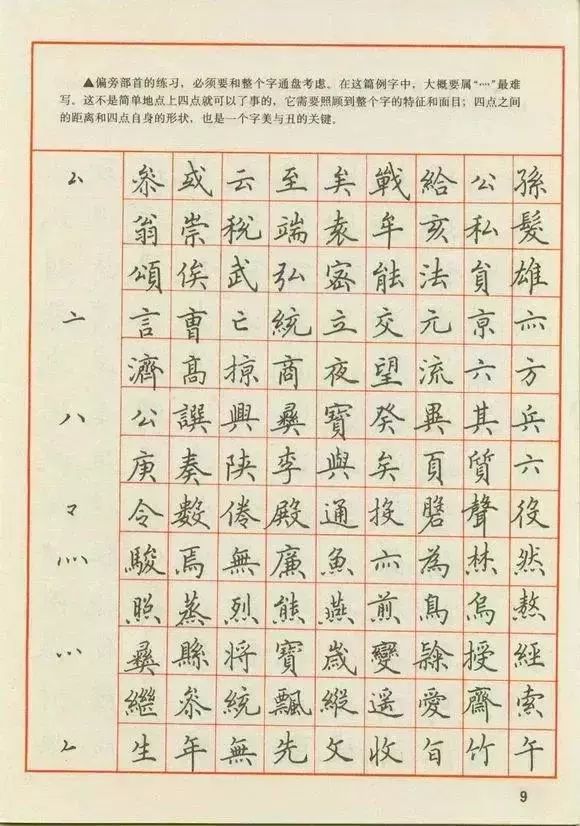 ▲偏旁部首的练习，必须要和整个字通盘考虑。在这篇例字中，大概要属“灬”最难
写。这不是简单地点上四点就可以了事的，它需要照顾到整个字的特征和面目；四点之间
的距离和四点自身的形状，也是一个字美与丑的关键。
厶 參 或 云 至 矣 戰 給 公 孫
翁 崇 稅 端 袁 牟 亥 私 髮
頌 俟 武 弘 密 能 法 負 雄
亠 言 曹 亡 統 立 交 元 京 亦
濟 高 掠 商 夜 望 流 六 方
八 公 譔 興 彝 寶 癸 異 其 兵
庚 奏 陝 李 與 矣 頁 質 六
令 數 倦 殿 通 聲 役
灬 駿 焉 無 廉 魚 亦 為 然
照 蒸 烈 熊 燕 煎 鳥 烏 熬
彝 縣 将 寶 歲 變 授 經
繼 參 統 飄 縱 遥 愛 齋 索
生 年 無 先 文 收 旨 竹 午
9